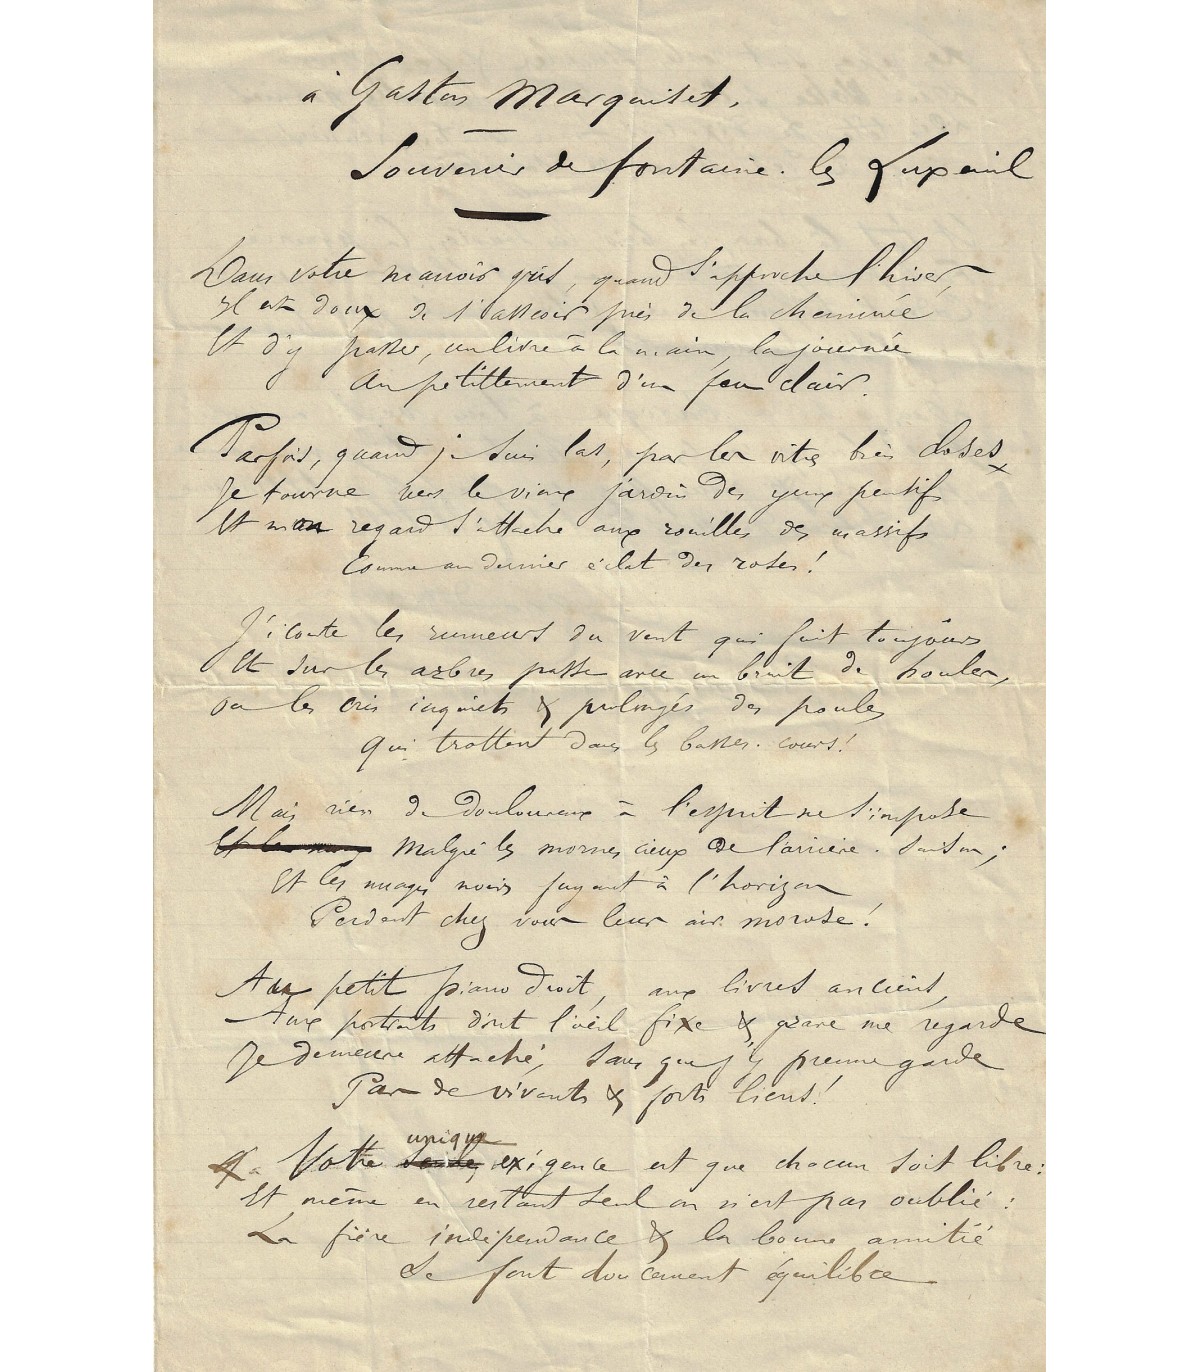 à Gaston Marquiset,
Souvenir de fontaine. les Luxeuil
Dans votre manoir gris, quand s'approche l'hiver,
Il est doux de s'asseoir près de la cheminée
Et d'y passer, un livre à la main, la journée
Au petillement d'un feu clair.
Parfois, quand je suis las, par les vitres bien closes
Je tourne vers le vieux jardin des yeux pensifs
Et mon regard s'attache aux rouilles des massifs
Comme au dernier éclat des roses!
J'écoute les rumeurs du vent qui fuit toujours
Et sur les arbres passe avec un bruit de houles,
Ou les cris inquiets & prolongés des poules
Qui trottent dans les basses. cours!
Mais rien de douloureux à l'esprit ne s'impose
Et les nuag Malgré les mornes cieux de l'arrière. saison;
Et les nuages noirs fuyant à l'horizon
Perdent chez vous leur air morose!
Au petit piano droit, aux livres anciens,
Aux portraits dont l'œil fixe & grave me regarde
Je demeure attaché, sans que j'y prenne garde
Par de vivants & forts liens!
unique
Votre seule exigence est que chacun soit libre:
Et même en restant seul on n'est pas oublié:
La fière indépendance & la bonne amitié
Se font doucement équilibre